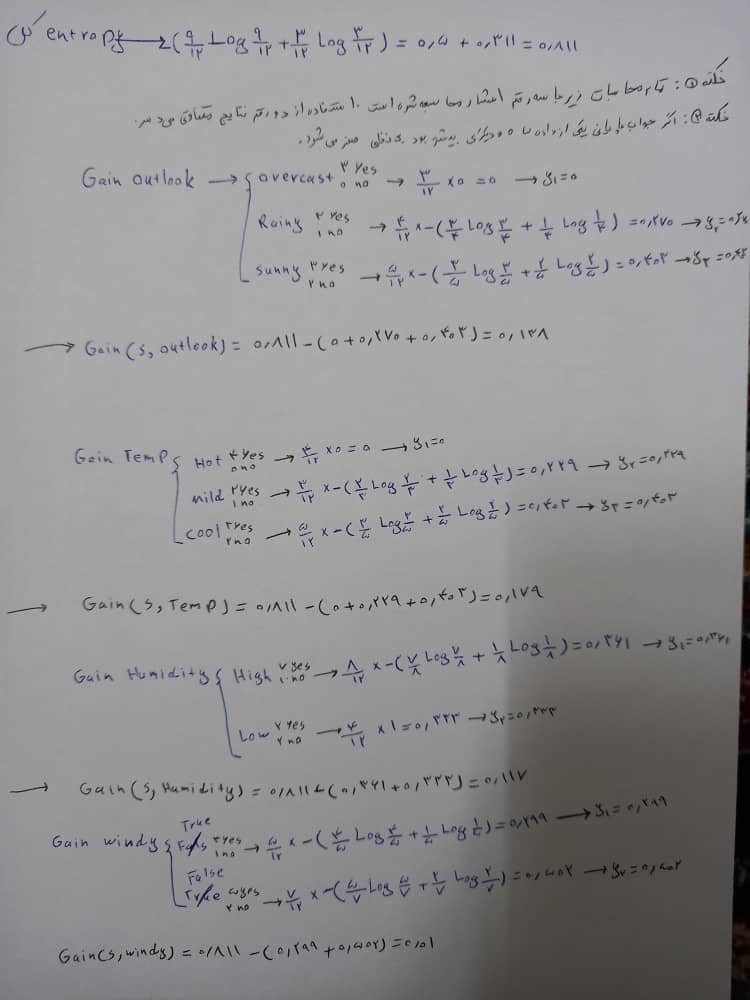 entropy کل → -(۹/۱۲ Log ۹/۱۲ + ۳/۱۲ Log ۳/۱۲) = ۰,۵ + ۰,۳۱۱ = ۰,۸۱۱
نکته ①: تمام محاسبات زیر با سه رقم اعشار محاسبه شده است. استفاده از دو رقم نتایج متفاوتی می‌دهد.
نکته ②: اگر جواب
Gain outlook → { overcast ۳ Yes ۰ no → ۳/۱۲ × ۰ = ۰ → y₁=۰
Rainy ۳ yes ۱ no → ۴/۱۲ × -(۳/۴ Log ۳/۴ + ۱/۴ Log ۱/۴) = ۰,۲۷۰ → y₂=۰,۲۷
sunny ۳ yes ۲ no → ۵/۱۲ × -(۳/۵ Log ۳/۵ + ۲/۵ Log ۲/۵) = ۰,۴۰۳ → y₃=۰,۴۰۳
→ Gain(s, outlook) = ۰,۸۱۱ - (۰ + ۰,۲۷۰ + ۰,۴۰۳) = ۰,۱۳۸
Gain Temp { Hot ۴ yes ۰ no → ۴/۱۲ × ۰ = ۰ → y₁=۰
mild ۲ yes ۱ no → ۳/۱۲ × -(۲/۳ Log ۲/۳ + ۱/۳ Log ۱/۳) = ۰,۲۲۹ → y₂=۰,۲۲۹
cool ۳ yes ۲ no → ۵/۱۲ × -(۳/۵ Log ۳/۵ + ۲/۵ Log ۲/۵) = ۰,۴۰۳ → y₃=۰,۴۰۳
→ Gain(s, Temp) = ۰,۸۱۱ - (۰ + ۰,۲۲۹ + ۰,۴۰۳) = ۰,۱۷۹
Gain Humidity { High ۷ yes ۱ no → ۸/۱۲ × -(۷/۸ Log ۷/۸ + ۱/۸ Log ۱/۸) = ۰,۳۶۱ → y₁=۰,۳۶۱
Low ۲ yes ۲ no → ۴/۱۲ × ۱ = ۰,۳۳۳ → y₂=۰,۳۳۳
→ Gain(s, Humidity) = ۰,۸۱۱ - (۰,۳۶۱ + ۰,۳۳۳) = ۰,۱۱۷
True
Gain windy { ۴ yes ۱ no → ۵/۱۲ × -(۴/۵ Log ۴/۵ + ۱/۵ Log ۱/۵) = ۰,۲۹۹ → y₁=۰,۲۹۹
False
۵ yes ۲ no → ۷/۱۲ × -(۵/۷ Log ۵/۷ + ۲/۷ Log ۲/۷) = ۰,۵۰۲ → y₂=۰,۵۰۲
Gain(s, windy) = ۰,۸۱۱ - (۰,۲۹۹ + ۰,۵۰۲) = ۰,۰۱